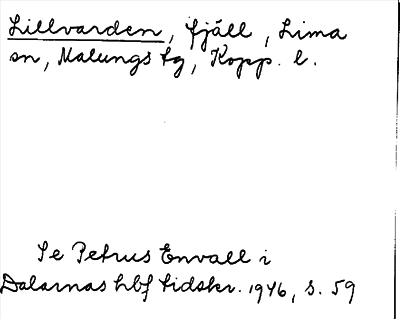 Lillvarden, fjäll, Lima
sn, Malungs tg, Kopp. l.
Se Petrus Envall i
Dalarnas hbf tidskr. 1946, s. 59